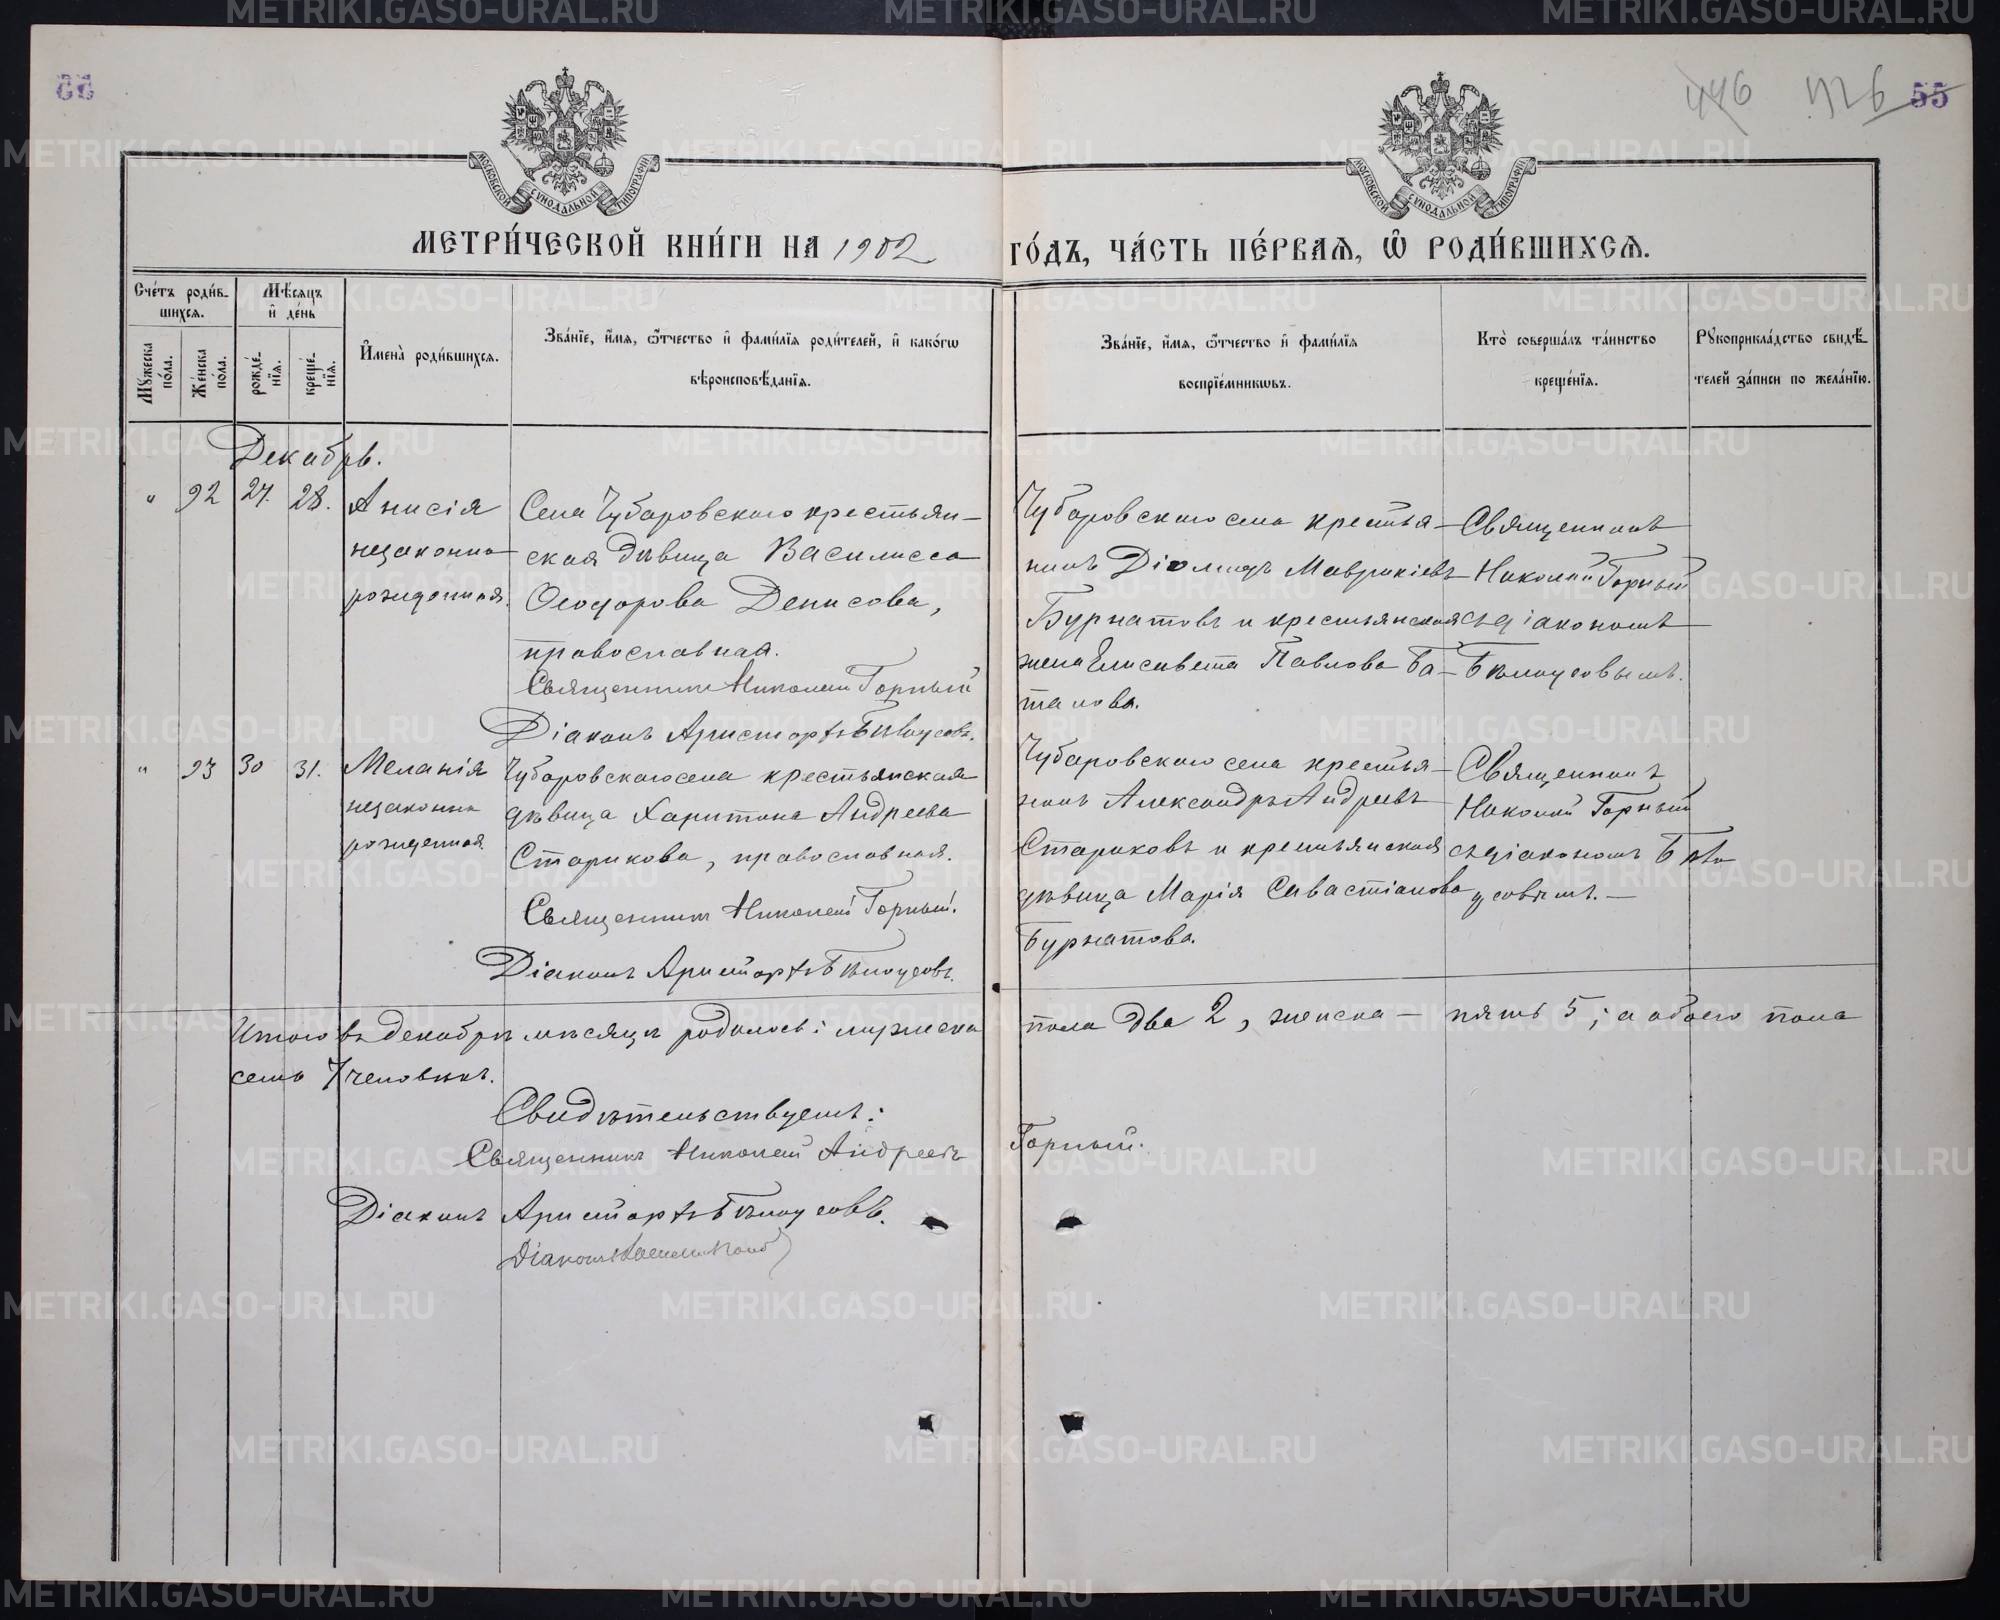 55
446 426 55
МОСКОВСКОЙ СѴНОДАЛЬНОЙ ТИПОГРАФІИ
МОСКОВСКОЙ СѴНОДАЛЬНОЙ ТИПОГРАФІИ
МЕТРИ́ЧЕСКОЙ КНИ́ГИ НА 1902 ГО́ДЪ, ЧА́СТЬ ПЕ́РВАЯ, Ѡ҆ РОДИ́ВШИХСЯ.
Сче́тъ роди́в-
шихся.
Мꙋжеска по́ла.
Же́нска по́ла.
Мѣ́сяцъ
и҆ де́нь
рожде́нїя.
креще́нїя.
И҆мена̀ роди́вшихся.
Зва́нїе, и҆́мя, ѻ҆́тчество и҆ фами́лїя роди́телей, и҆ како́гѡ
вѣроисповѣ́данїя.
Зва́нїе, и҆́мя, ѻ҆́тчество и҆ фами́лїя
воспрїе́мникѡвъ.
Кто̀ соверша́лъ та́инство
креще́нїя.
Рꙋкоприкла́дство свидѣ́-
телей за́писи по жела́нїю.
Декабрь.
" 92 27. 28.
Анисія
незаконно
рожденная.
Села Чубаровскаго крестьян-
ская дѣвица Василисса
Ѳеодорова Денисова,
православная.
Священникъ Николай Горный
Діаконъ Аристархъ Бѣлоусовъ.
Чубаровскаго села крестья-
нинъ Діомидъ Маврикіевъ
Бурнатовъ и крестьянская
жена Елисавета Павлова Ба-
танова.
Священникъ
Николай Горный
съ діакономъ
Бѣлоусовымъ.
" 93 30 31.
Меланія
незаконно
рожденная
Чубаровскаго села крестьянская
дѣвица Харитина Андреева
Старикова, православная.
Священникъ Николай Горный.
Діаконъ Аристархъ Бѣлоусовъ.
Чубаровскаго села крестья-
нинъ Александръ Андреевъ
Стариковъ и крестьянская
дѣвица Марія Савастіанова
Бурнатова.
Священникъ
Николай Горный
съ діакономъ Бѣло-
усовымъ. —
Итого въ декабрѣ мѣсяцѣ родилось: мужеска пола два 2, женска — пять 5; а обоего пола
семь 7 человѣкъ.
Свидѣтельствуемъ:
Священникъ Николай Андреевъ Горный.
Діаконъ Аристархъ Бѣлоусовъ.
Діаконъ
METRIKI.GASO-URAL.RU